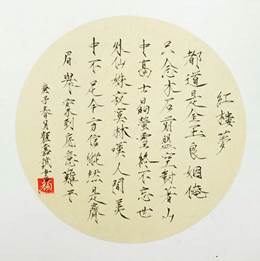 紅樓夢
都道是金玉良姻俺
只念木石前盟空對著山
中高士晶瑩雪終不忘世
外仙姝寂寞林嘆人間美
中不足今方信縱然是齊
眉舉案到底意難平
庚子春月